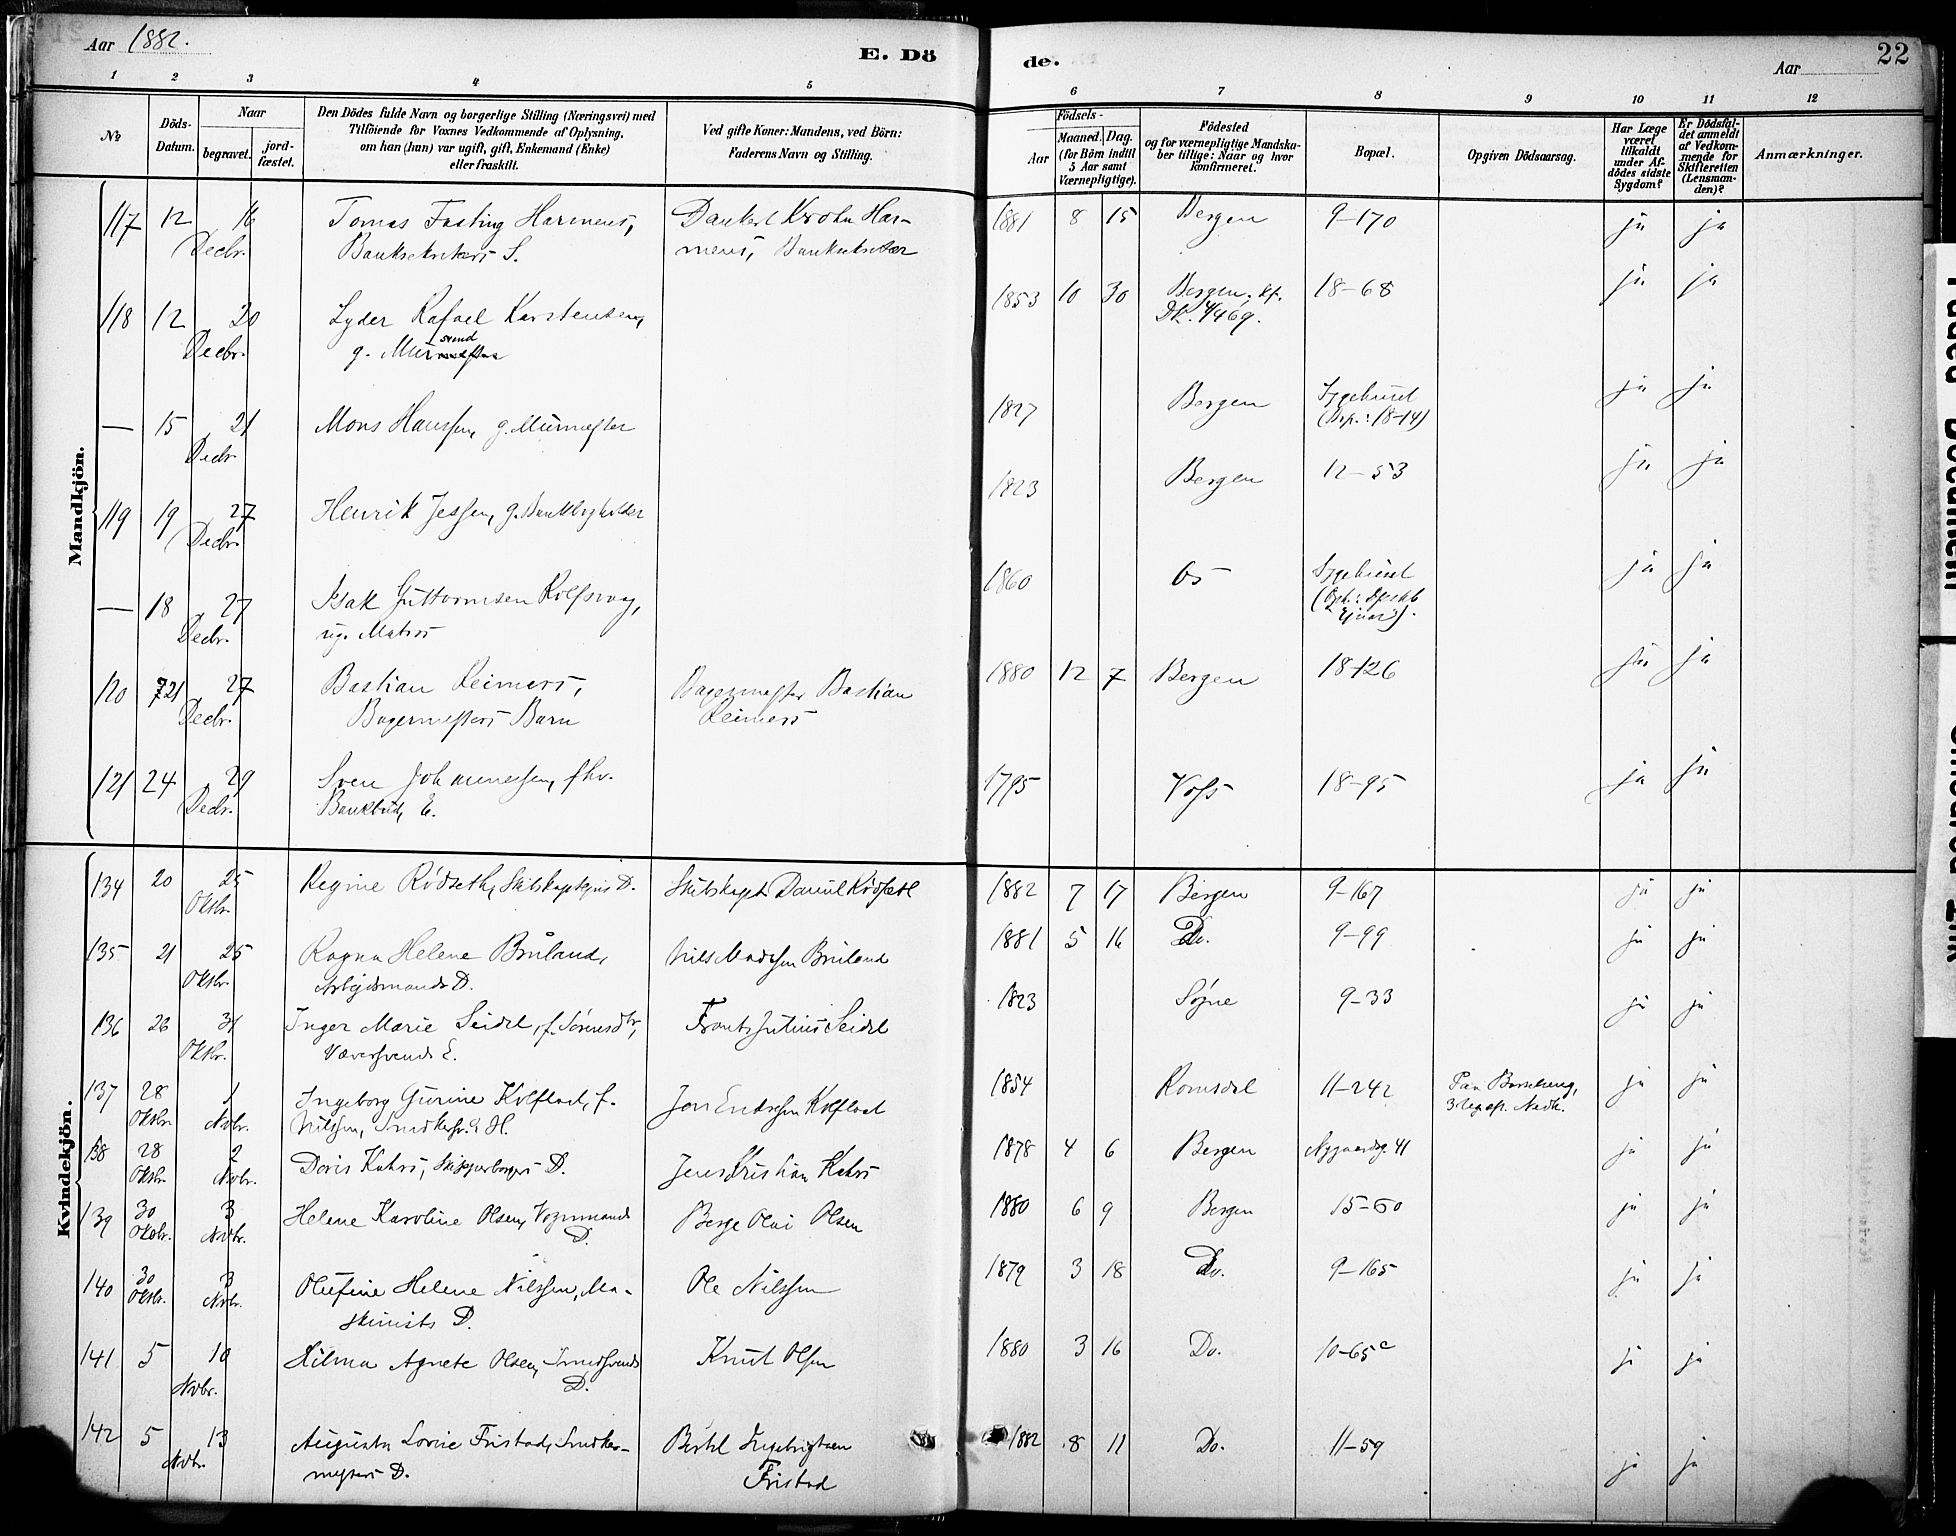 Aar 1882.
E. Dö de.
Aar
22
1 2 3 4 5 6 7 8 9 10 11 12
No
Döds-Datum.
Naar
begravet.
jord-fæstet.
Den Dödes fulde Navn og borgerlige Stilling (Næringsvei) med
Tilföiende for Voxnes Vedkommende af Oplysning,
om han (hun) var ugift, gift, Enkemand (Enke)
eller fraskilt.
Ved gifte Koner: Mandens, ved Börn:
Faderens Navn og Stilling.
Födsels-
Aar
Maaned. Dag.
(for Börn indtil
5 Aar samt
Værnepligtige).
Födested
og for værnepligtige Mandska-
ber tillige: Naar og hvor
konfirmeret.
Bopæl.
Opgiven Dödsaarsag.
Har Læge
været
tilkaldt
under Af-
dödes sidste
Sygdom?
Er Dödsfal-
det anmeldt
af Vedkom-
mende for
Skifteretten
(Lensman-
den)?
Anmærkninger.
Mandkjön.
117 12 16 Tomas Fasting Harmens, Dankert Krohn Har- 1881 8 15 Bergen 9-170 ja ja
Decbr. Banksekretærs S. mens, Banksekretær
118 12 20 Lyder Rafael Karstensen, 1853 10 30 Bergen. Kf. 18-68 ja ja
Decbr. g. Mursvend DK. 4/4 69.
— 15 21 Mons Hanssen, g. Murmester 1827 Bergen Sygehuset ja ja
Decbr. (Bop.: 18-14)
119 19 27 Henrik Jessen, g. Bankbogholder 1823 Bergen 12-53 ja ja
Decbr.
— 18 27 Isak Guttormsen Rolfsvaag, 1860 Os Sygehuset ja ja
Decbr. ug. Matros
120 21 27 Bastian Reimers, Bagermester Bastian 1880 12 7 Bergen 18-126 ja ja
Decbr. Bagermesters Barn Reimers
121 24 29 Sven Johannessen, fhv. 1795 Voss 18-95 ja ja
Decbr. Bankbud, E.
Kvindekjön.
134 20 25 Regine Rödseth, D. Daniel Rödseth 1882 7 17 Bergen 9-167 ja ja
Oktbr.
135 21 25 Ragna Helene Bruland, Nils Madssen Bruland 1881 5 16 Do. 9-99 ja ja
Oktbr. Arbejdsmands D.
136 26 31 Inger Marie Seidel, f. Sörensdtr, Frants Julius Seidel 1823 Sögne 9-33 ja ja
Oktbr. Væversvends E.
137 28 1 Ingeborg Gurine Kolflaat, f. Jon Endresen Kolflaat 1854 Romsdal 11-242 Paa Barselseng, ja ja
Oktbr. Novbr. Nilssen, Snedkersv.s H. 3 Dg. eft. Nedk.
138 28 2 Doris Kahrs, Skipperborgers D. Jens Kristian Kahrs 1878 4 6 Bergen Nygaardsg. 41 ja ja
Oktbr. Novbr.
139 30 3 Helene Karoline Olsen, Vognmands Berge Olai Olsen 1880 6 9 Bergen 15-60 ja ja
Oktbr. Novbr. D.
140 30 3 Olufine Helene Nilssen, Ma- Ole Nilssen 1879 3 18 Do. 9-165 ja ja
Oktbr. Novbr. skinists D.
141 5 10 Hilma Agnete Olsen, Smedsvends Knut Olsen 1880 3 16 Do. 10-65c ja ja
Novbr. D.
142 5 13 Augusta Lovise Fristad, Snedker- Bertel Ingebrigtsen 1882 8 11 Do. 11-59 ja ja
Novbr. mesters D. Fristad